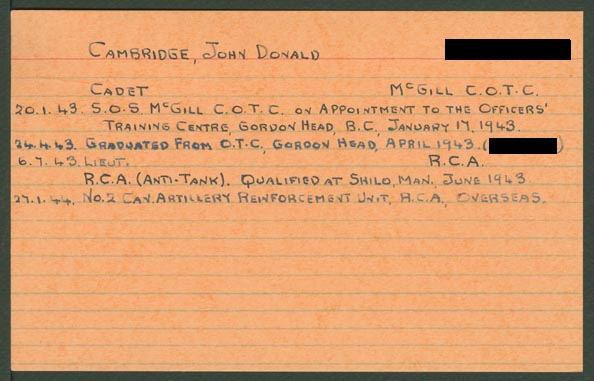 CAMBRIDGE, JOHN DONALD
CADET McGILL C.O.T.C.
20.1.43. S.O.S. McGILL C.O.T.C. ON APPOINTMENT TO THE OFFICERS'
TRAINING CENTRE, GORDON HEAD, B.C., JANUARY 17, 1943.
24.4.43. GRADUATED FROM O.T.C., GORDON HEAD, APRIL 1943. ( )
6.7.43. LIEUT. R.C.A.
R.C.A. (ANTI-TANK). QUALIFIED AT SHILO, MAN., JUNE 1943
27.1.44. NO.2 CAN. ARTILLERY REINFORCEMENT UNIT, R.C.A., OVERSEAS.